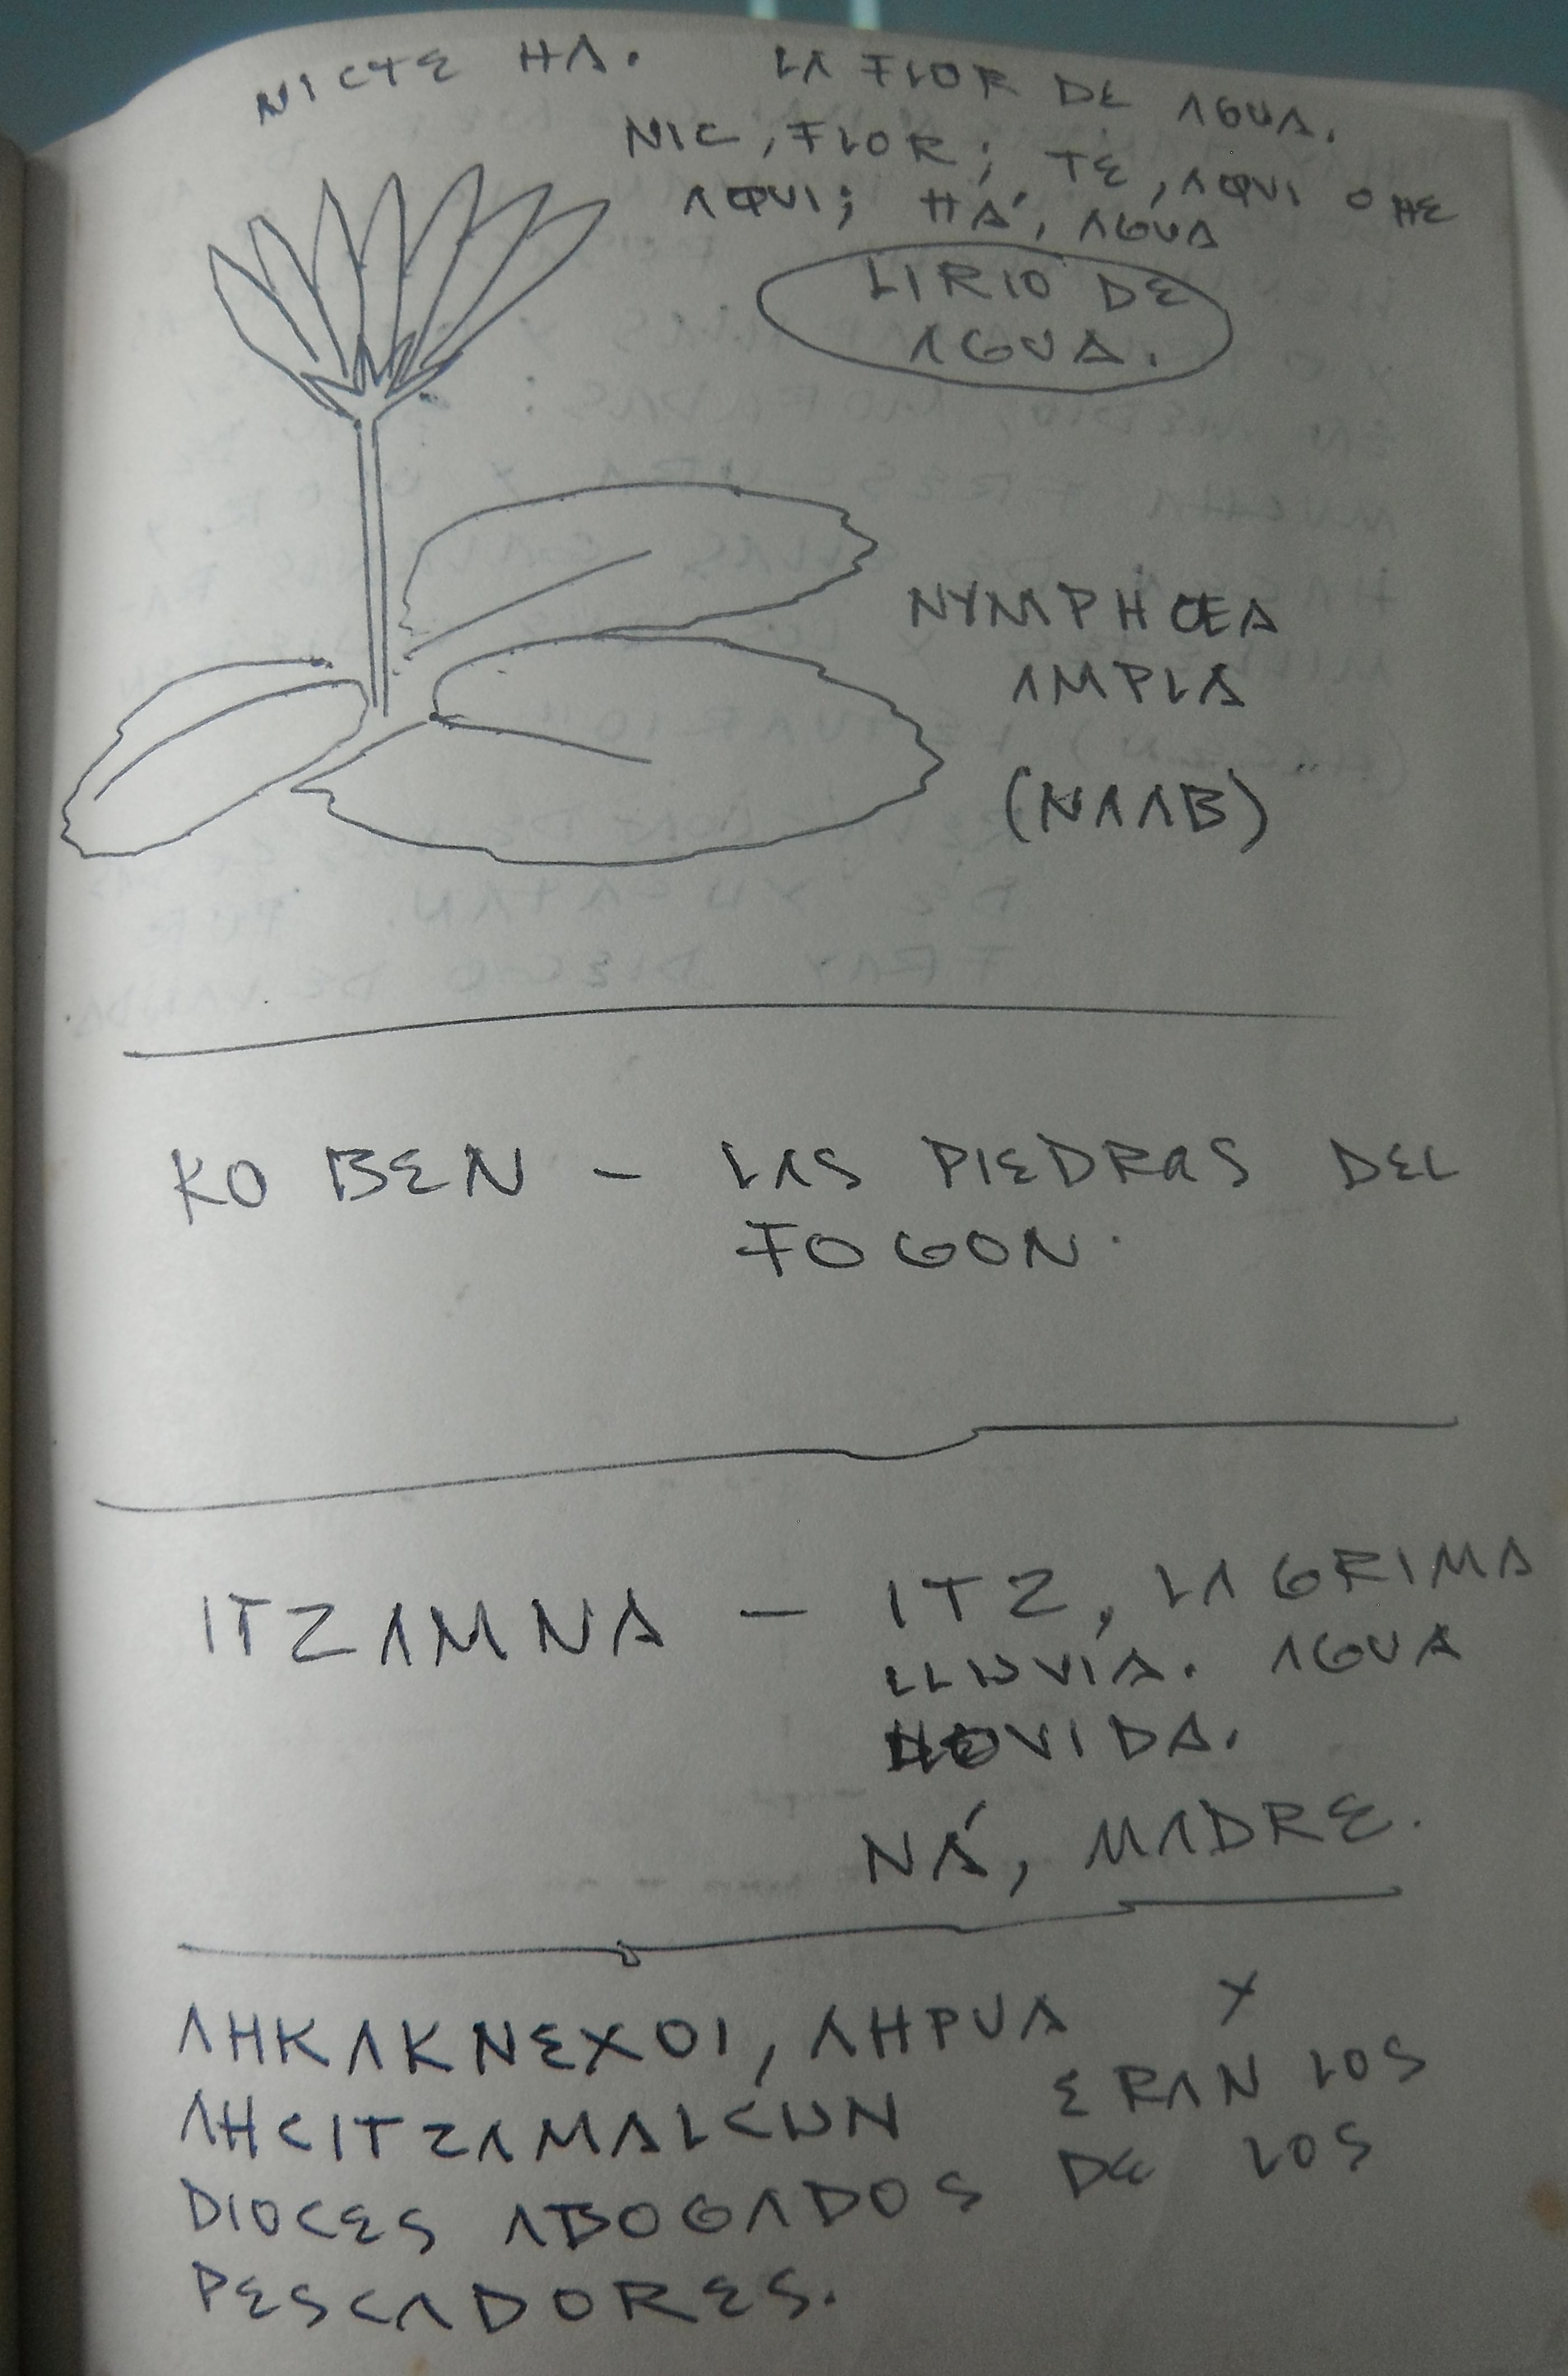 NICTE HA. LA FLOR DE AGUA.
NIC, FLOR; TE, AQUI O HE
AQUI; HÁ, AGUA
LIRIO DE
AGUA.
NYMPHOEA
AMPLA
(NAAB)
KO BEN - LAS PIEDRAS DEL
FOGON.
ITZAMNA - ITZ, LAGRIMA
LLUVIA. AGUA
LLOVIDA.
NÁ, MADRE.
AHKAKNEXOI, AHPUA Y
AHCITZAMALCUN ERAN LOS
DIOCES ABOGADOS DE LOS
PESCADORES.